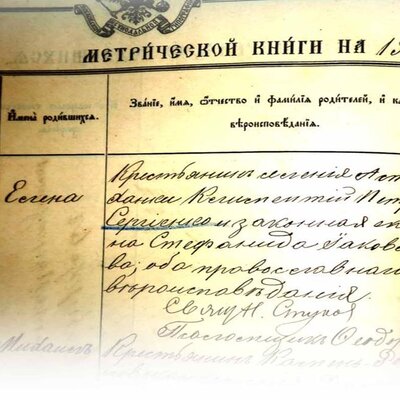 МЕТРИЧЕСКОЙ КНИГИ НА 1
Имена родившихся.
Званіе, имя, отчество и фамилія родителей, и ка
вѣроисповѣданія.
Елена
Крестьянинъ селенія Аст
ханки Петр
Сергіенко и законная е
на Стефанида Яковле
ва; оба православнаго
вѣроисповѣданія.
Свящ. Н.
Псаломщикъ Ѳеодор
Михаилъ
Крестьянинъ